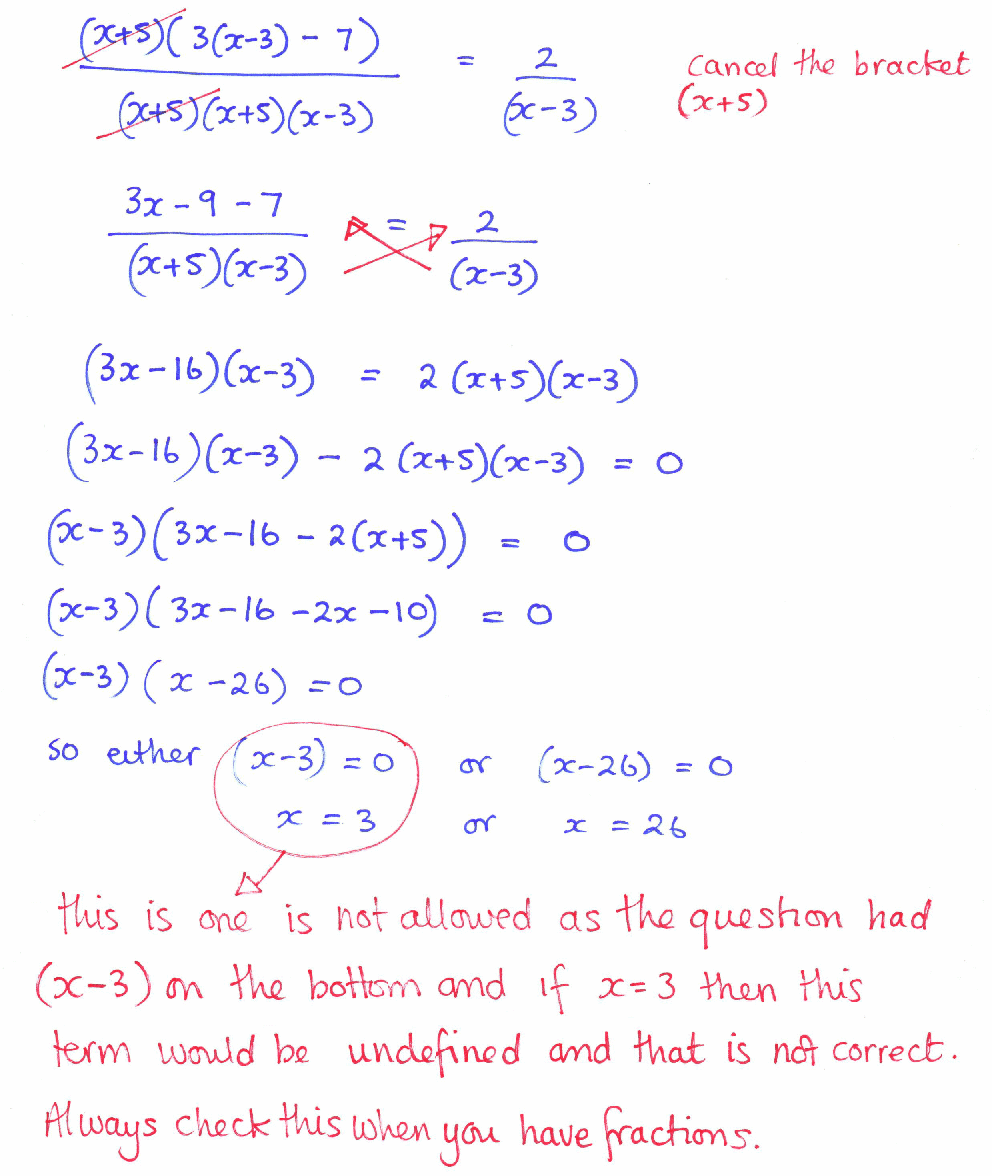 (x+5)(3(x-3) - 7) = 2 cancel the bracket
(x+5)(x+5)(x-3) (x-3) (x+5)
3x - 9 - 7 = 2
(x+5)(x-3) (x-3)
(3x-16)(x-3) = 2(x+5)(x-3)
(3x-16)(x-3) - 2(x+5)(x-3) = 0
(x-3)(3x-16 - 2(x+5)) = 0
(x-3)(3x-16-2x-10) = 0
(x-3)(x-26) = 0
so either (x-3) = 0 or (x-26) = 0
x = 3 or x = 26
this is one is not allowed as the question had
(x-3) on the bottom and if x=3 then this
term would be undefined and that is not correct.
Always check this when you have fractions.